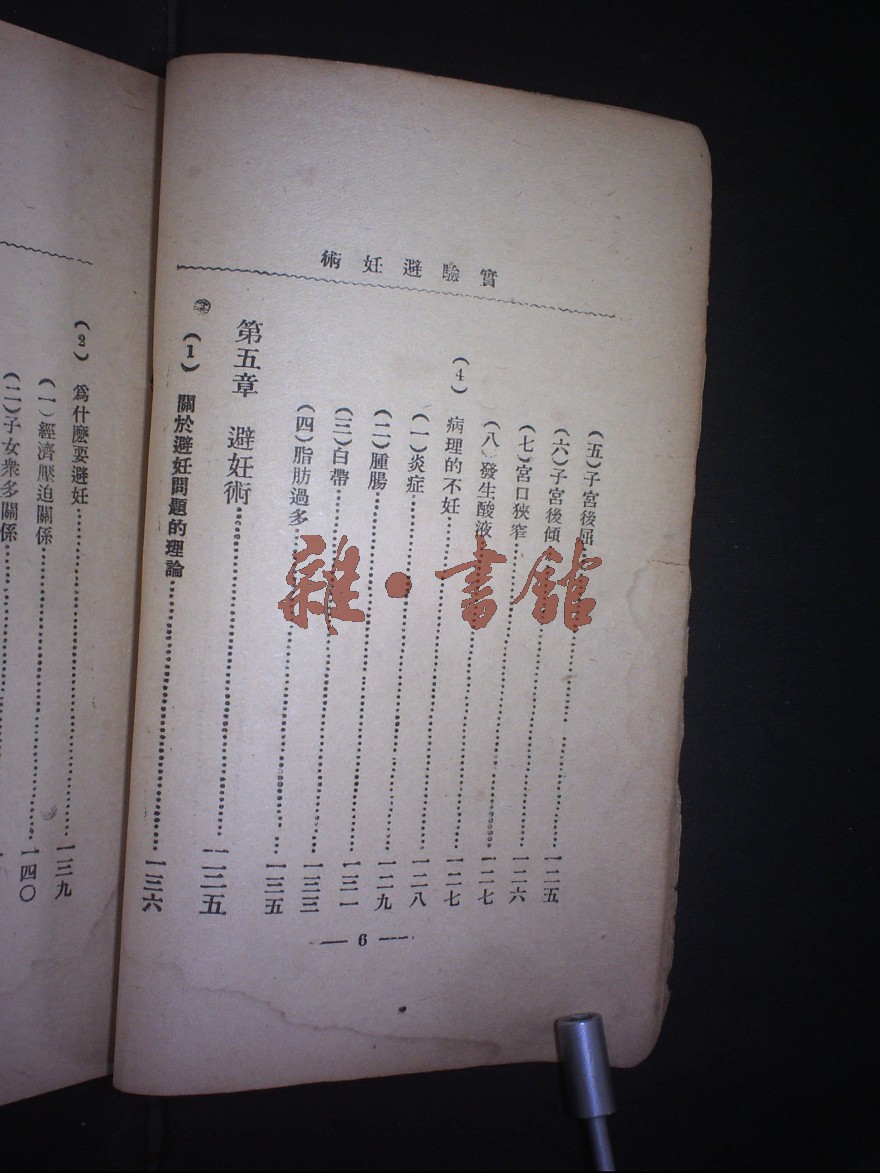 實驗避妊術
(五)子宮後屈……一二五
(六)子宮後傾……一二六
(七)宮口狹窄……一二七
(八)發生酸液……一二七
(4) 病理的不妊……一二八
(一)炎症……一二九
(二)腫腸……一三一
(三)白帶……一三三
(四)脂肪過多……一三五
第五章 避妊術……一三五
(1) 關於避妊問題的理論……一三六
— 6 —
(2) 爲什麼要避妊……一三九
(一)經濟壓迫關係……一四〇
(二)子女衆多關係……
雜·書館